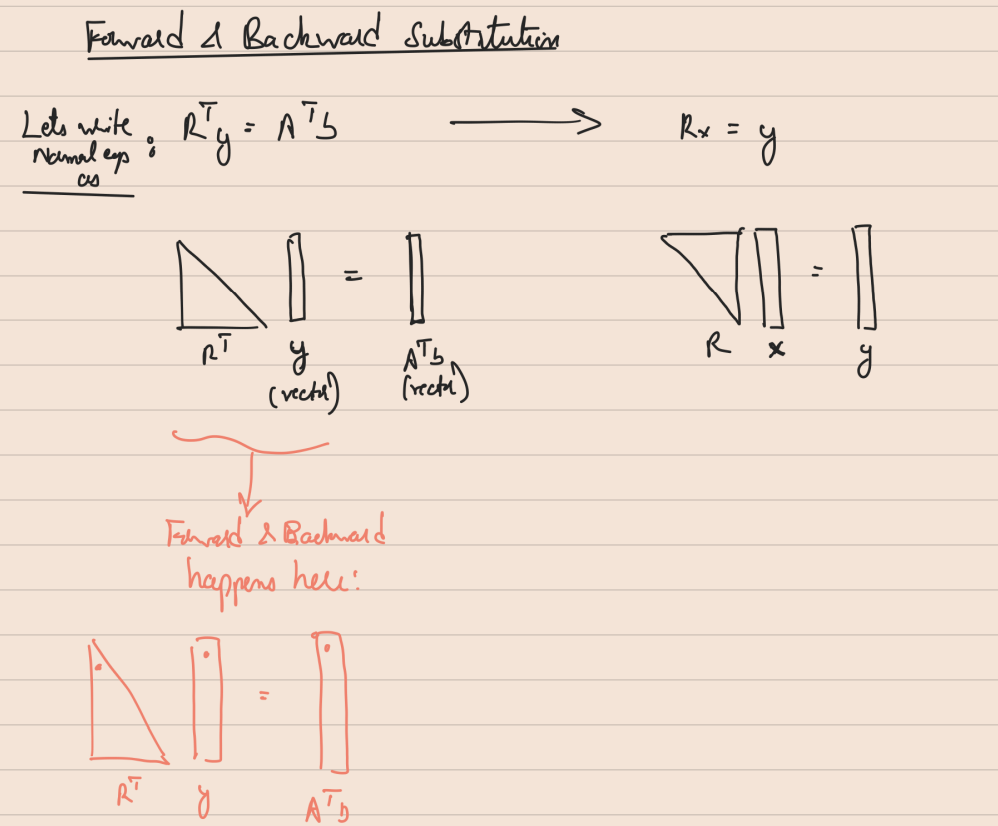 Forward & Backward Substitution
Lets write
Normal eqs
as :
Rᵀy = Aᵀb → Rx = y
=
=
Rᵀ y Aᵀb R x y
(vector) (vector)
Forward & Backward
happens here:
=
Rᵀ y Aᵀb